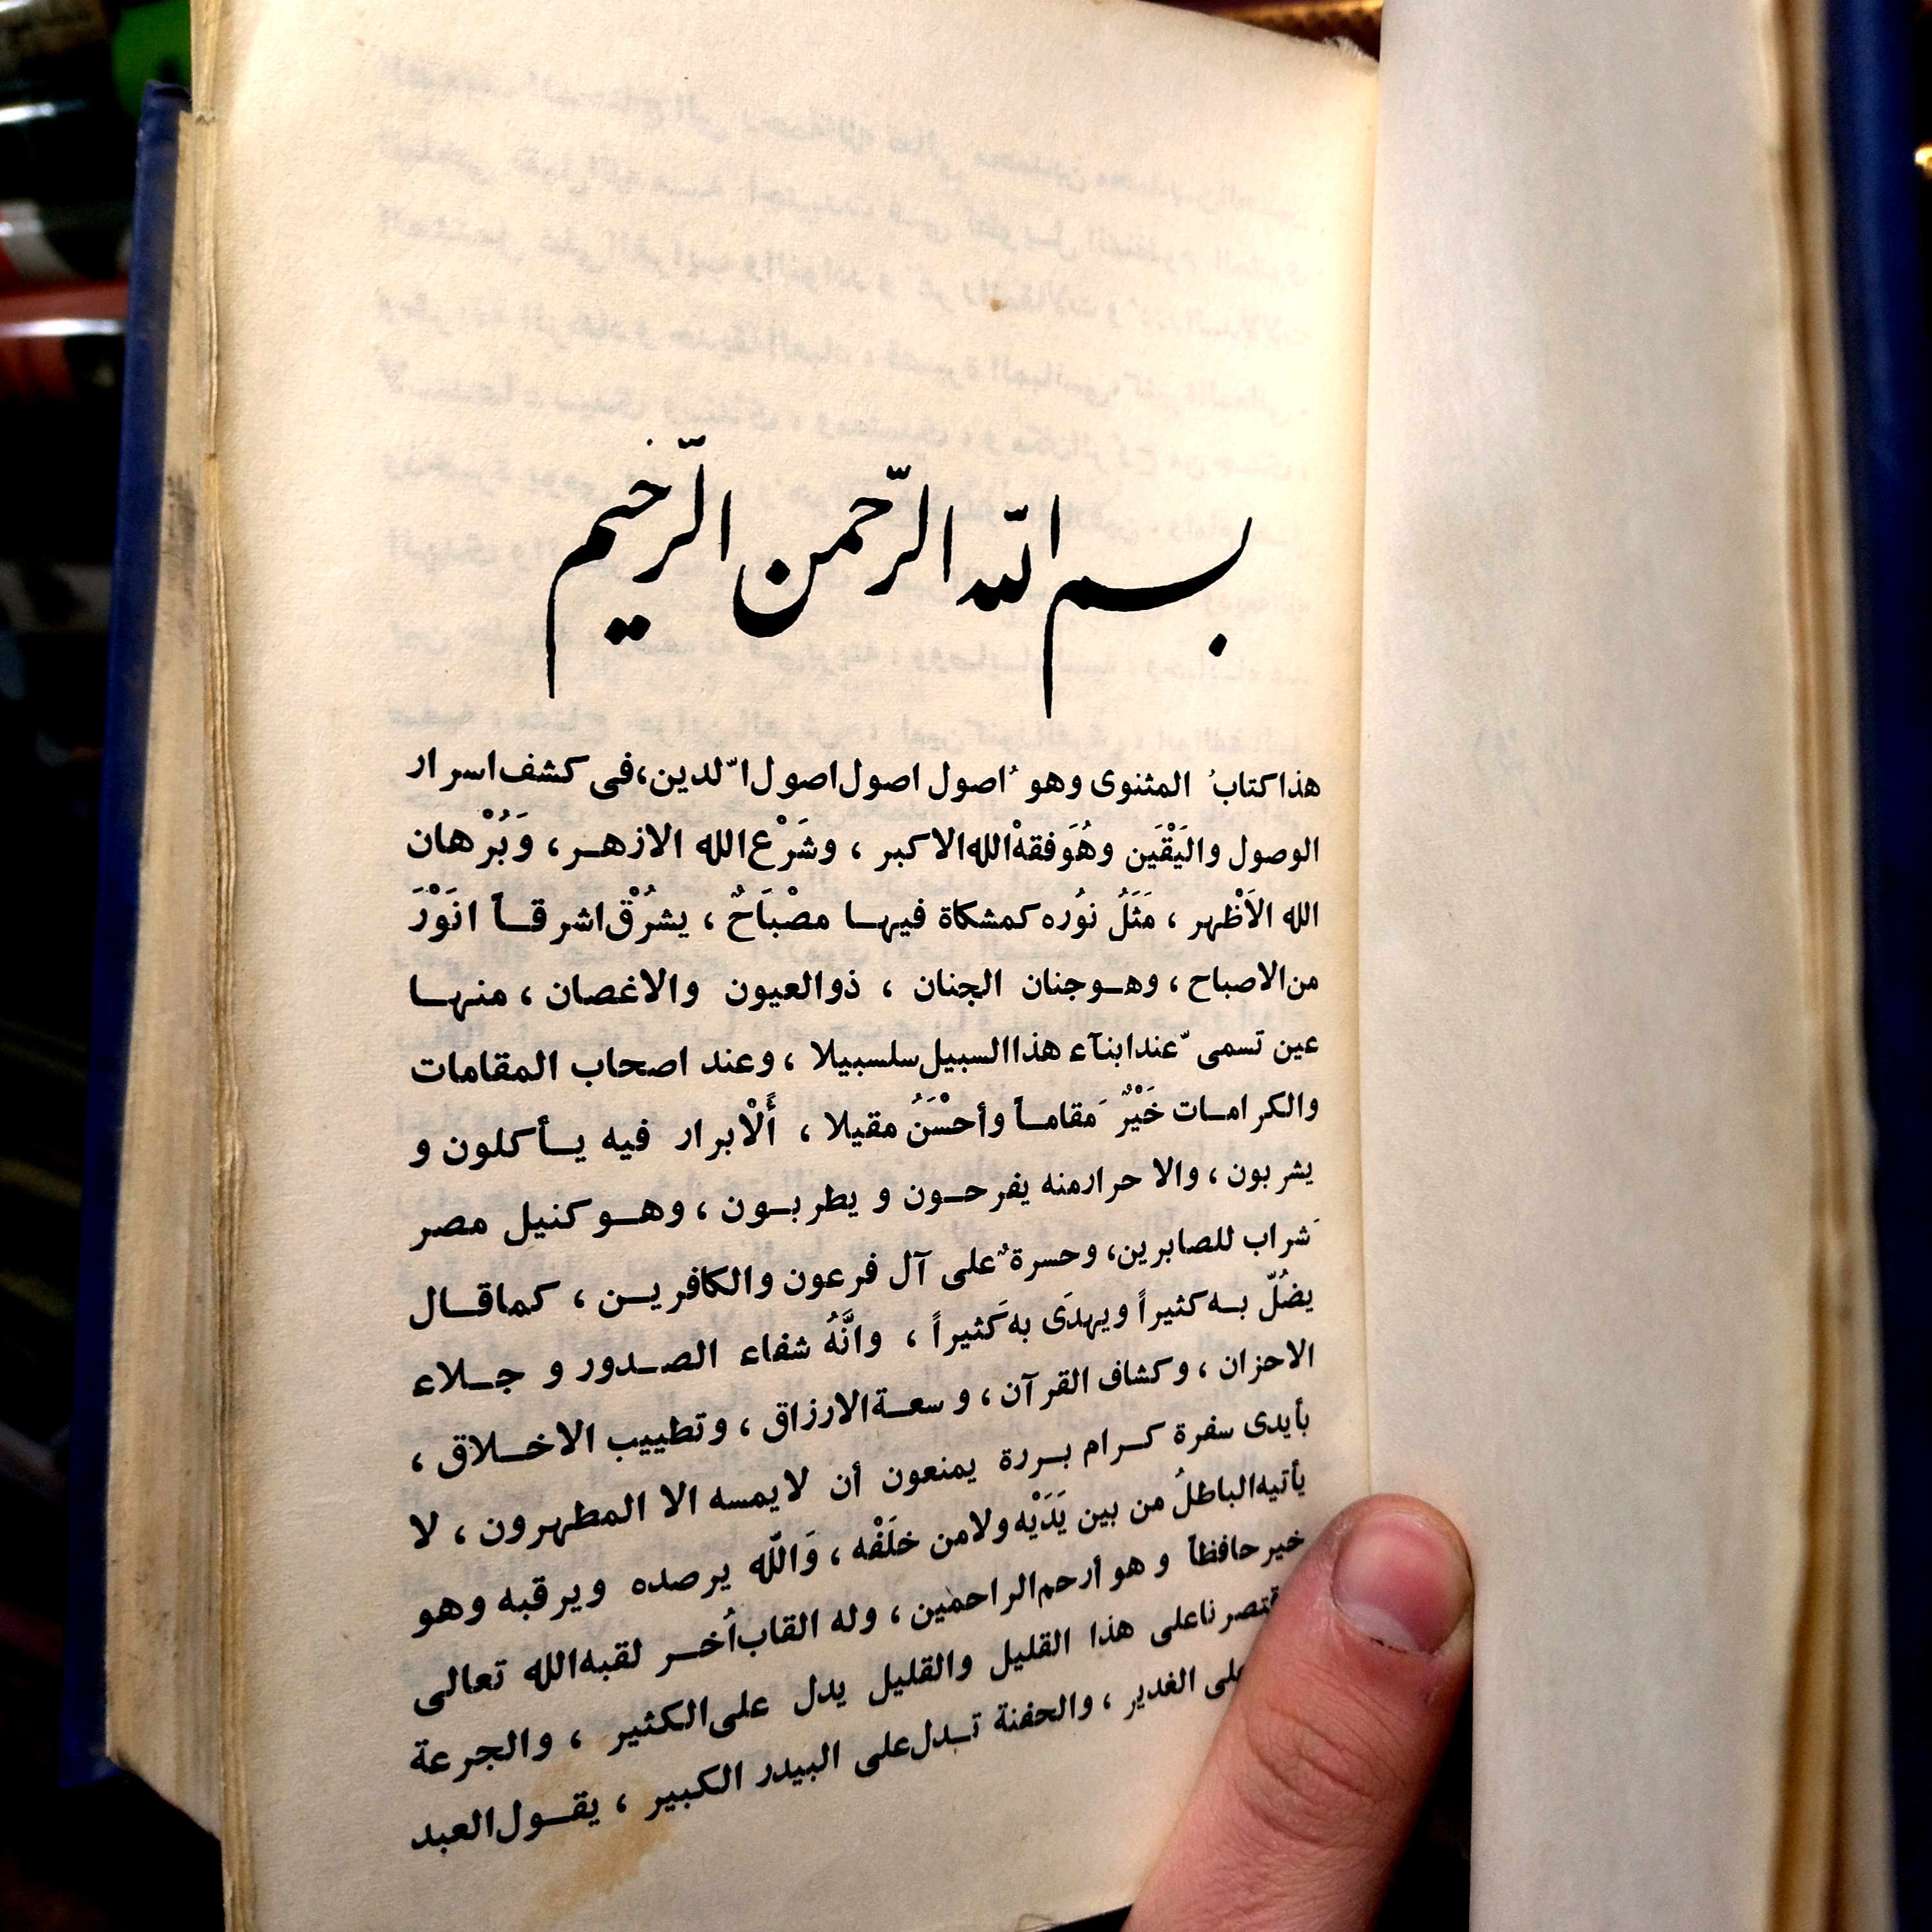 بسم الله الرّحمن الرّحیم
هذا كتابُ المثنوى وهو ُاصول اصول اصول ا ّلدين، فى كشف اسرار
الوصول واليَقْيَن وهُوَ فقهْ الله الاكبر ، وشَرْع الله الازهـر ، وَبُرْهان
الله الاَظْهر ، مَثَلُ نوُره كمشكاة فيهـا مصْبَاحٌ ، يشرُقْ اشر قـاً انَوْرَ
من الاصباح ، وهـو جنان الجنان ، ذو العيون والاغصان ، منهـا
عين تسمى ّعند ابنآء هذا السبيل سلسبيلا ، وعند اصحاب المقامات
والكرامـات خَيْرٌ َمقامـاً وأحسْنَُ مقيلا ، أَلْابرار فيه يـأكلون و
يشربون ، والا حرار منه يفرحـون و يطربـون ، وهـو كنيل مصر
َشراب للصابرين، وحسرة ٌعلى آل فرعون والكافريـن ، كما قـال
يضُلّ بـه كثيراً ويهدَى به كَثيراً ، وانَّهُ شفاء الصـدور و جـلاء
الاحزان ، وكشاف القرآن ، و سعـة الارزاق ، وتطييب الاخـلاق ،
بأيدى سفرة كـرام بـررة يمنعون أن لايمسه الا المطهرون ، لا
يأتيه الباطلُ من بين يَدَيْه ولامن خلَفْه ، وَاللّه يرصده ويرقبه وهو
خير حافظاً و هو أرحم الراحمين ، وله القاب اُخـر لقبه الله تعالى
هذا القليل والقليل يدل على الكثير ، والجرعة
الغدير ، والحفنة تـدل على البيدر الكبير ، يقـول العبد